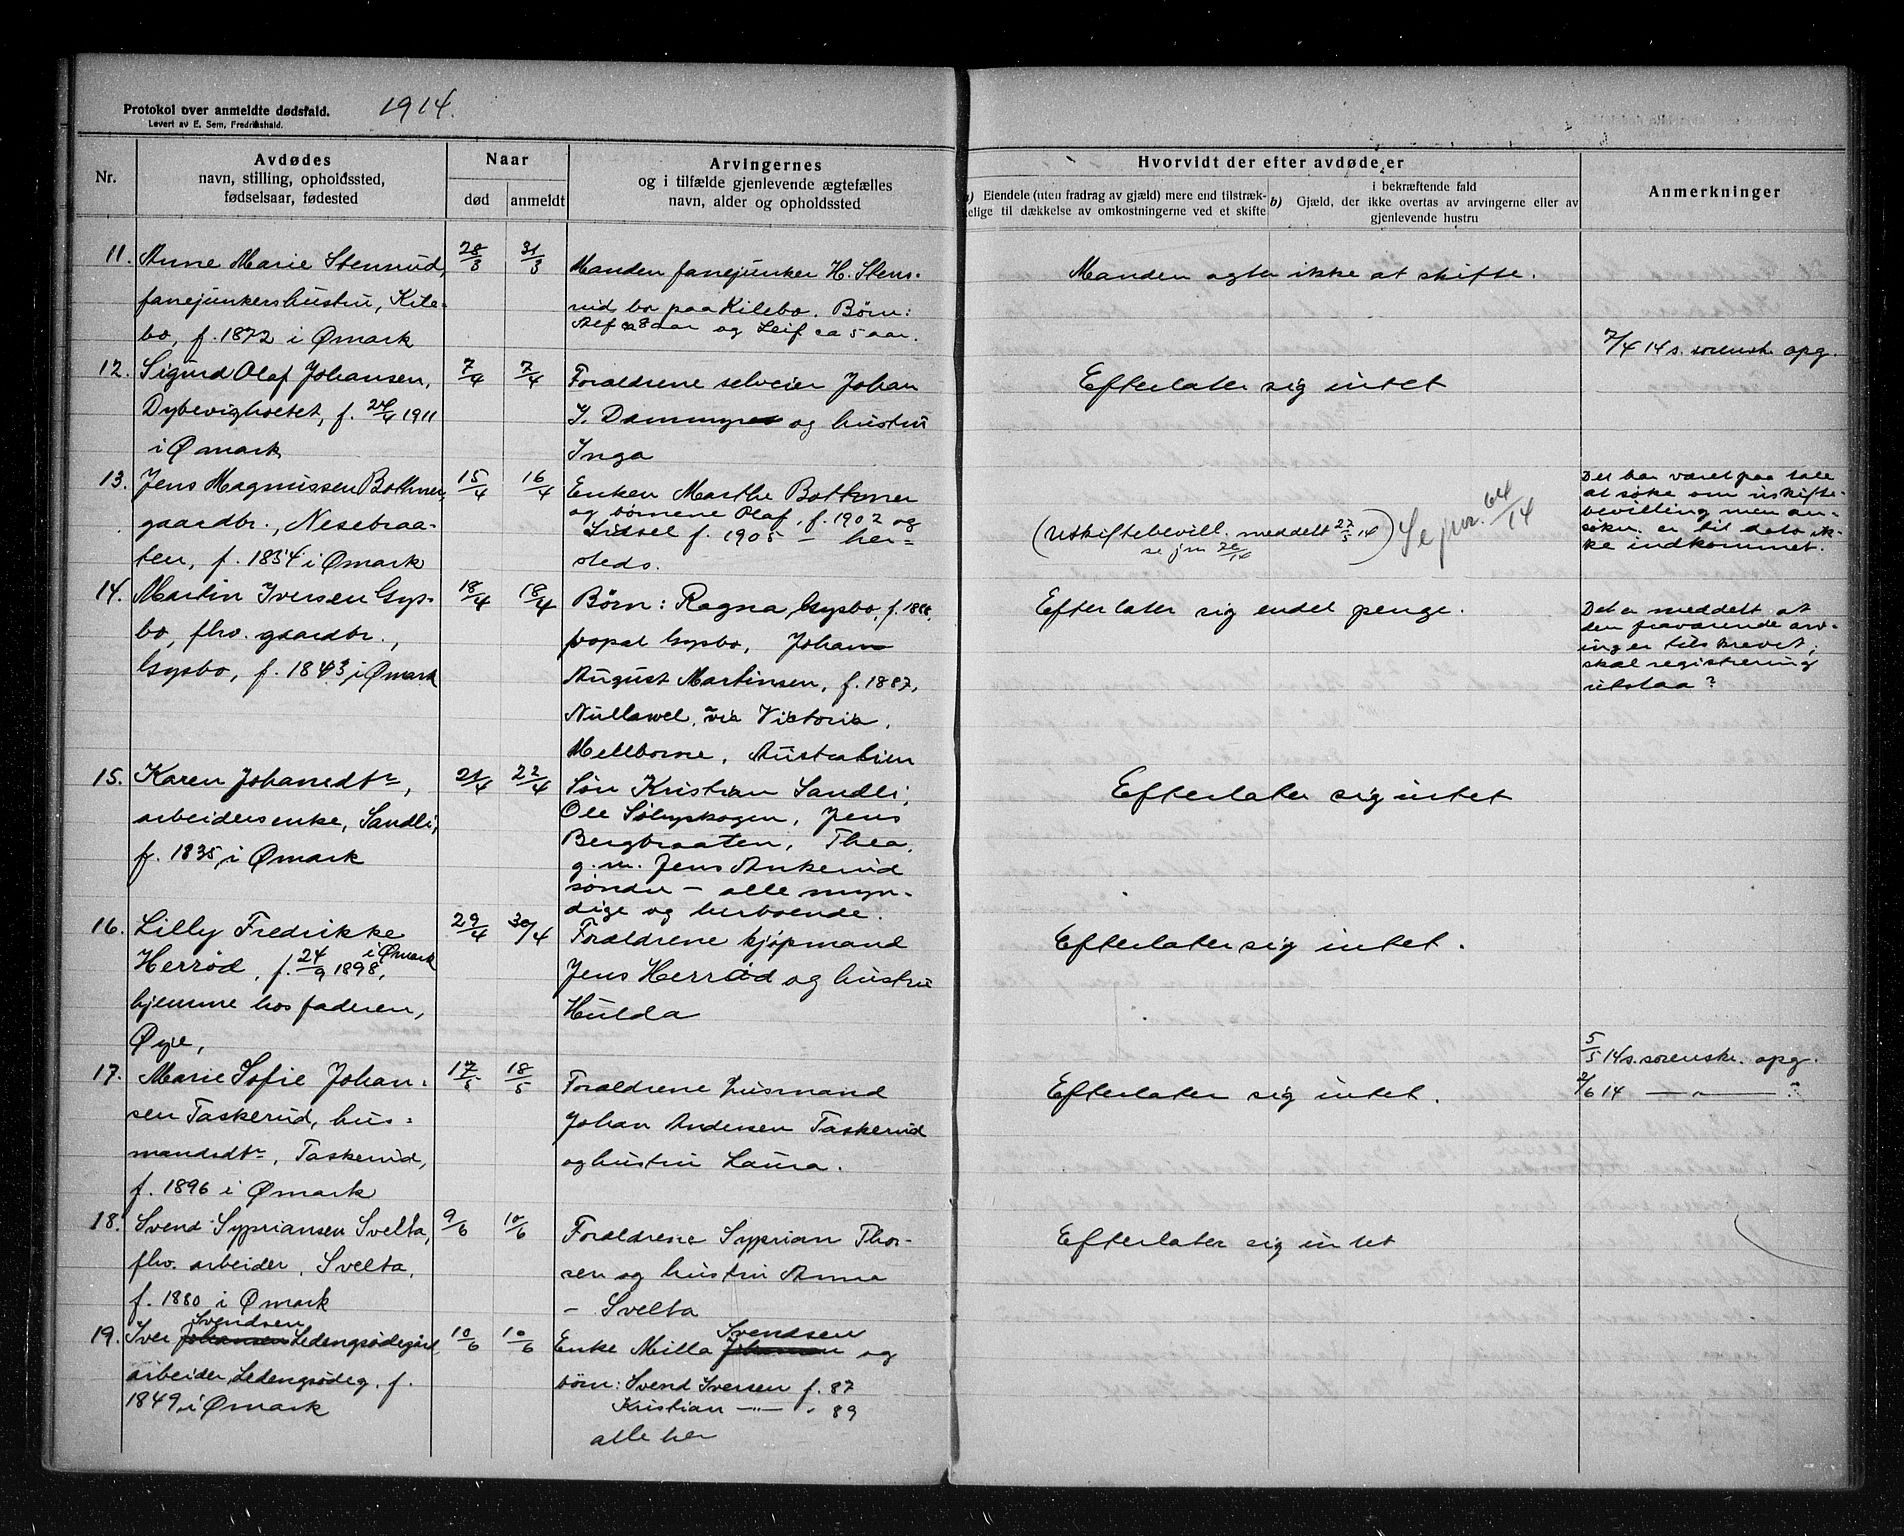 Protokol over anmeldte dødsfald. 1914.
Levert av E. Sem, Fredrikshald.
Nr.
Avdødes
navn, stilling, opholdssted,
fødselsaar, fødested
Naar
død
anmeldt
Arvingernes
og i tilfælde gjenlevende ægtefælles
navn, alder og opholdssted
Hvorvidt der efter avdøde er
a) Eiendele (uten fradrag av gjæld) mere end tilstræk-
kelige til dækkelse av omkostningerne ved et skifte
i bekræftende fald
b) Gjæld, der ikke overtas av arvingerne eller av
gjenlevende hustru
Anmerkninger
11. Anne Marie Stensrud,
fanejunkershustru, Kile-
bo, f. 1872 i Ømark
28/3
31/3
Manden fanejunker H. Stens-
rud bo paa Kilebo. Børn:
Alf ca 8 aar og Leif ca 5 aar.
Manden agter ikke at skifte.
7/4 14 s. sorensk. opg.
12. Sigurd Olaf Johansen,
Dybevighoetet, f. 26/4 1911
i Ømark
7/4
7/4
Forældrene selveier Johan
J. Dammyren og hustru
Inga
Efterlater sig intet
13. Jens Magnussen Bothner,
gaardbr., Nesebraa-
ten, f. 1834 i Ømark
15/4
16/4
Enken Marthe Bothner
og børnene Olaf, f. 1902 og
Sidsel f. 1905 – her-
steds.
(Uskiftebevill. meddelt 27/5 14)
se jnr 26/14
Se jnr. 64/14
Det har været paa tale
at søke om uskifte-
bevilling men an-
søkn. er til dato ik-
ke indkommet.
14. Martin Iversen Gys-
bo, fhv. gaardbr.,
Gysbo, f. 1843 i Ømark
18/4
18/4
Børn: Ragna Gysbo, f. 1888,
Gysbo, Johan
August Martinsen, f. 1887,
Nullawel, via Victoria,
Mellborne, Australien
Efterlater sig endel penge.
Det er meddelt at
den fraværende arv-
ing er tilskrevet;
skal registrering
utstaa?
15. Karen Johansdtr,
arbeidersenke, Sandli,
f. 1835, i Ømark
21/4
22/4
Søn Kristian Sandli,
Ole Solbyskogen, Jens
Bergbraaten, Thea,
g. m. Jens Ankerud
søndre – alle myn-
dige og herboende.
Efterlater sig intet
16. Lilly Fredrikke
Herrød, f. 24/9 1898, i Ømark
hjemme hos faderen,
Øye,
29/4
30/4
Forældrene kjøpmand
Jens Herrød og hustru
Hulda
Efterlater sig intet.
5/5 14 s. sorensk. opg.
17. Marie Sofie Johan-
sen Taskerud, hus-
mandsdtr, Taskerud,
f. 1896 i Ømark
17/5
18/5
Forældrene husmand
Johan Andersen Taskerud
og hustru Laura.
Efterlater sig intet.
2/6 14 — " — ?
18. Svend Sypriansen Svelta,
fhv. arbeider, Svelta,
f. 1880 i Ømark
9/6
10/6
Forældrene Syprian Thor-
sen og hustru Anna
– Svelta
Efterlater sig intet
19. Iver Johansen Svendsen Ledengsødegård
arbeider, Ledengsødeg. f.
1849, i Ømark
10/6
10/6
Enke Milla Johansen Svendsen og
børn: Svend Iversen f. 87
Kristian — " — " 89
alle her